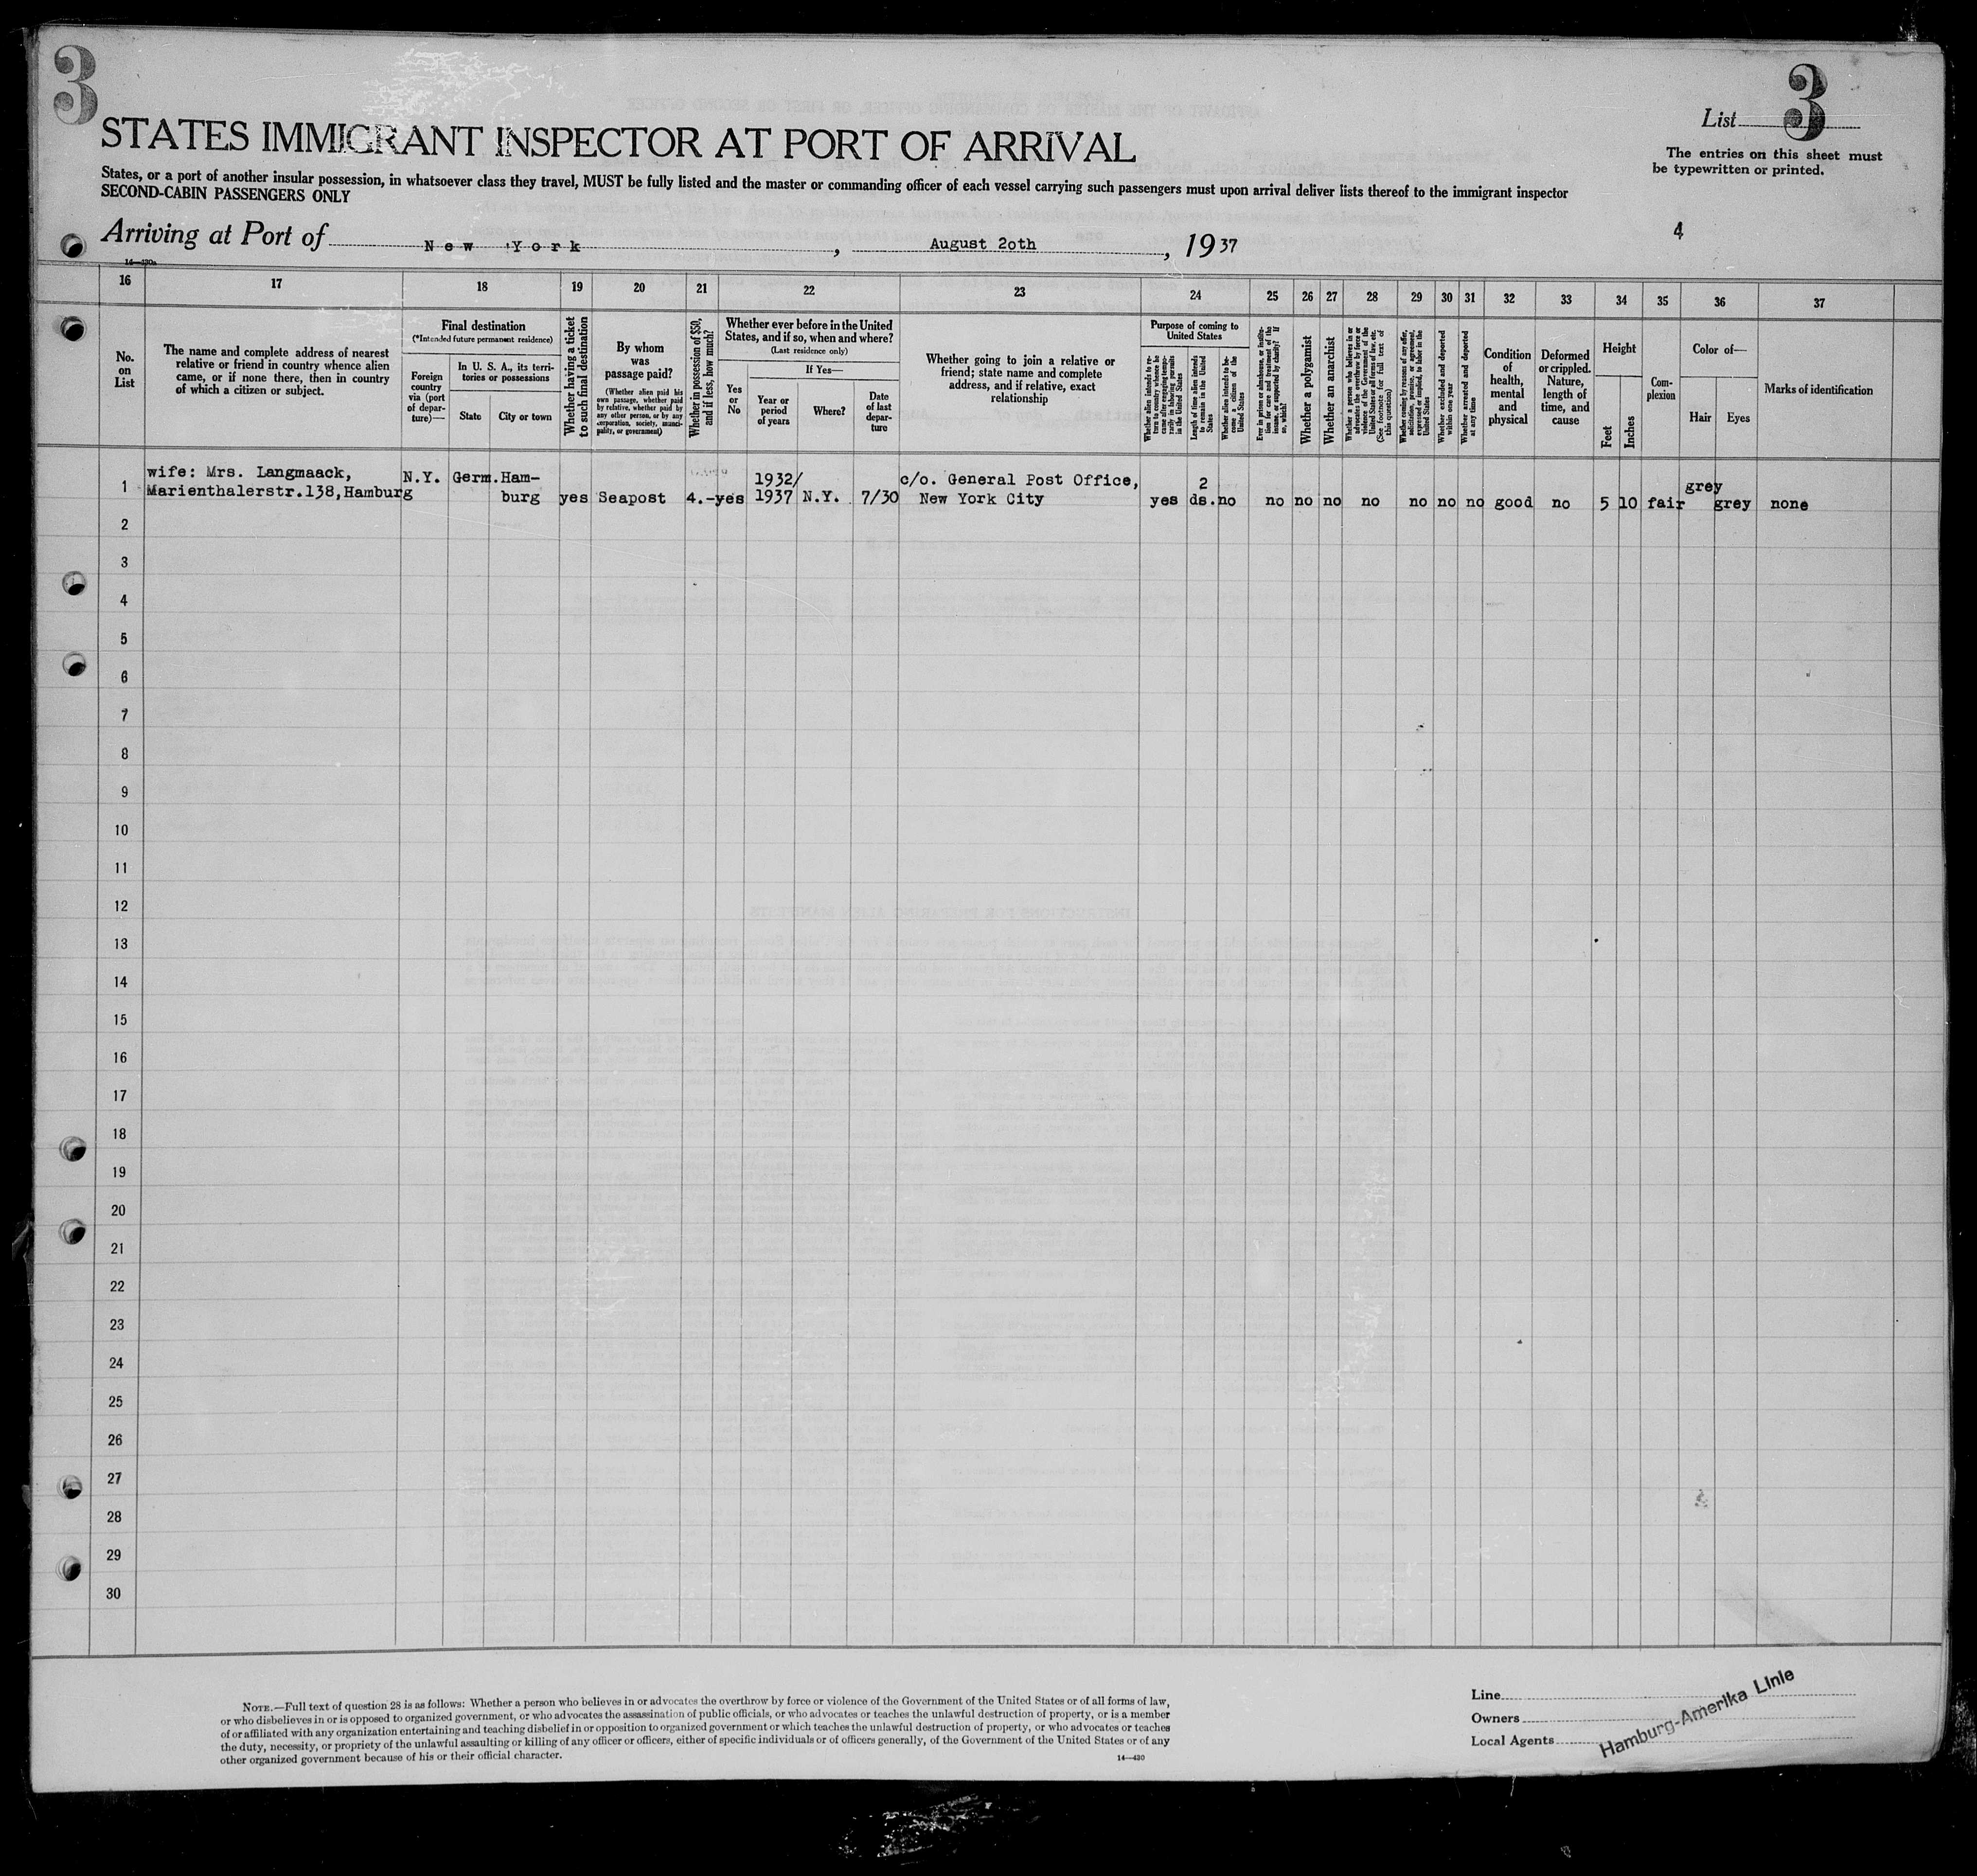 3
3
List
STATES IMMIGRANT INSPECTOR AT PORT OF ARRIVAL
The entries on this sheet must
be typewritten or printed.
States, or a port of another insular possession, in whatsoever class they travel, MUST be fully listed and the master or commanding officer of each vessel carrying such passengers must upon arrival deliver lists thereof to the immigrant inspector
SECOND-CABIN PASSENGERS ONLY
4
Arriving at Port of New York, August 2oth, 1937
14—430a
16 17 18 19 20 21 22 23 24 25 26 27 28 29 30 31 32 33 34 35 36 37
No.
on
List
The name and complete address of nearest
relative or friend in country whence alien
came, or if none there, then in country
of which a citizen or subject.
Final destination
(*Intended future permanent residence)
Foreign
country
via (port
of depar-
ture)—
In U. S. A., its terri-
tories or possessions
State
City or town
Whether having a ticket
to such final destination
By whom
was
passage paid?
(Whether alien paid his
own passage, whether paid
by relative, whether paid by
any other person, or by any
corporation, society, munici-
pality, or government)
Whether in possession of $50,
and if less, how much?
Whether ever before in the United
States, and if so, when and where?
(Last residence only)
Yes
or
No
If Yes—
Year or
period
of years
Where?
Date
of last
depar-
ture
Whether going to join a relative or
friend; state name and complete
address, and if relative, exact
relationship
Purpose of coming to
United States
Whether alien intends to re-
turn to country whence he
came after engaging tempo-
rarily in laboring pursuits
in the United States
Length of time alien intends
to remain in the United
States
Whether alien intends to be-
come a citizen of the
United States
Ever in prison or almshouse, or institu-
tion for care and treatment of the
insane, or supported by charity? If
so, which?
Whether a polygamist
Whether an anarchist
Whether a person who believes in or
advocates the overthrow by force or
violence of the Government of the
United States or all forms of law, etc.
(See footnote for full text of
this question)
Whether coming by reasons of any offer,
solicitation, promise, or agreement,
expressed or implied, to labor in the
United States
Whether excluded and deported
within one year
Whether arrested and deported
at any time
Condition
of
health,
mental
and
physical
Deformed
or crippled.
Nature,
length of
time, and
cause
Height
Feet
Inches
Com-
plexion
Color of—
Hair
Eyes
Marks of identification
1 wife: Mrs. Langmaack,
Marienthalerstr.138,Hamburg
N.Y. Germ. Ham-
burg yes Seapost 4.- yes
1932/
1937 N.Y. 7/30
c/o. General Post Office,
New York City
yes 2
ds. no no no no no no no no good no 5 10 fair grey grey none
2
3
4
5
6
7
8
9
10
11
12
13
14
15
16
17
18
19
20
21
22
23
24
25
26
27
28
29
30
NOTE.—Full text of question 28 is as follows: Whether a person who believes in or advocates the overthrow by force or violence of the Government of the United States or of all forms of law,
or who disbelieves in or is opposed to organized government, or who advocates the assassination of public officials, or who advocates or teaches the unlawful destruction of property, or is a member
of or affiliated with any organization entertaining and teaching disbelief in or opposition to organized government or which teaches the unlawful destruction of property, or who advocates or teaches
the duty, necessity, or propriety of the unlawful assaulting or killing of any officer or officers, either of specific individuals or of officers generally, of the Government of the United States or of any
other organized government because of his or their official character.
14—430
Line
Owners
Local Agents
Hamburg-Amerika Linie